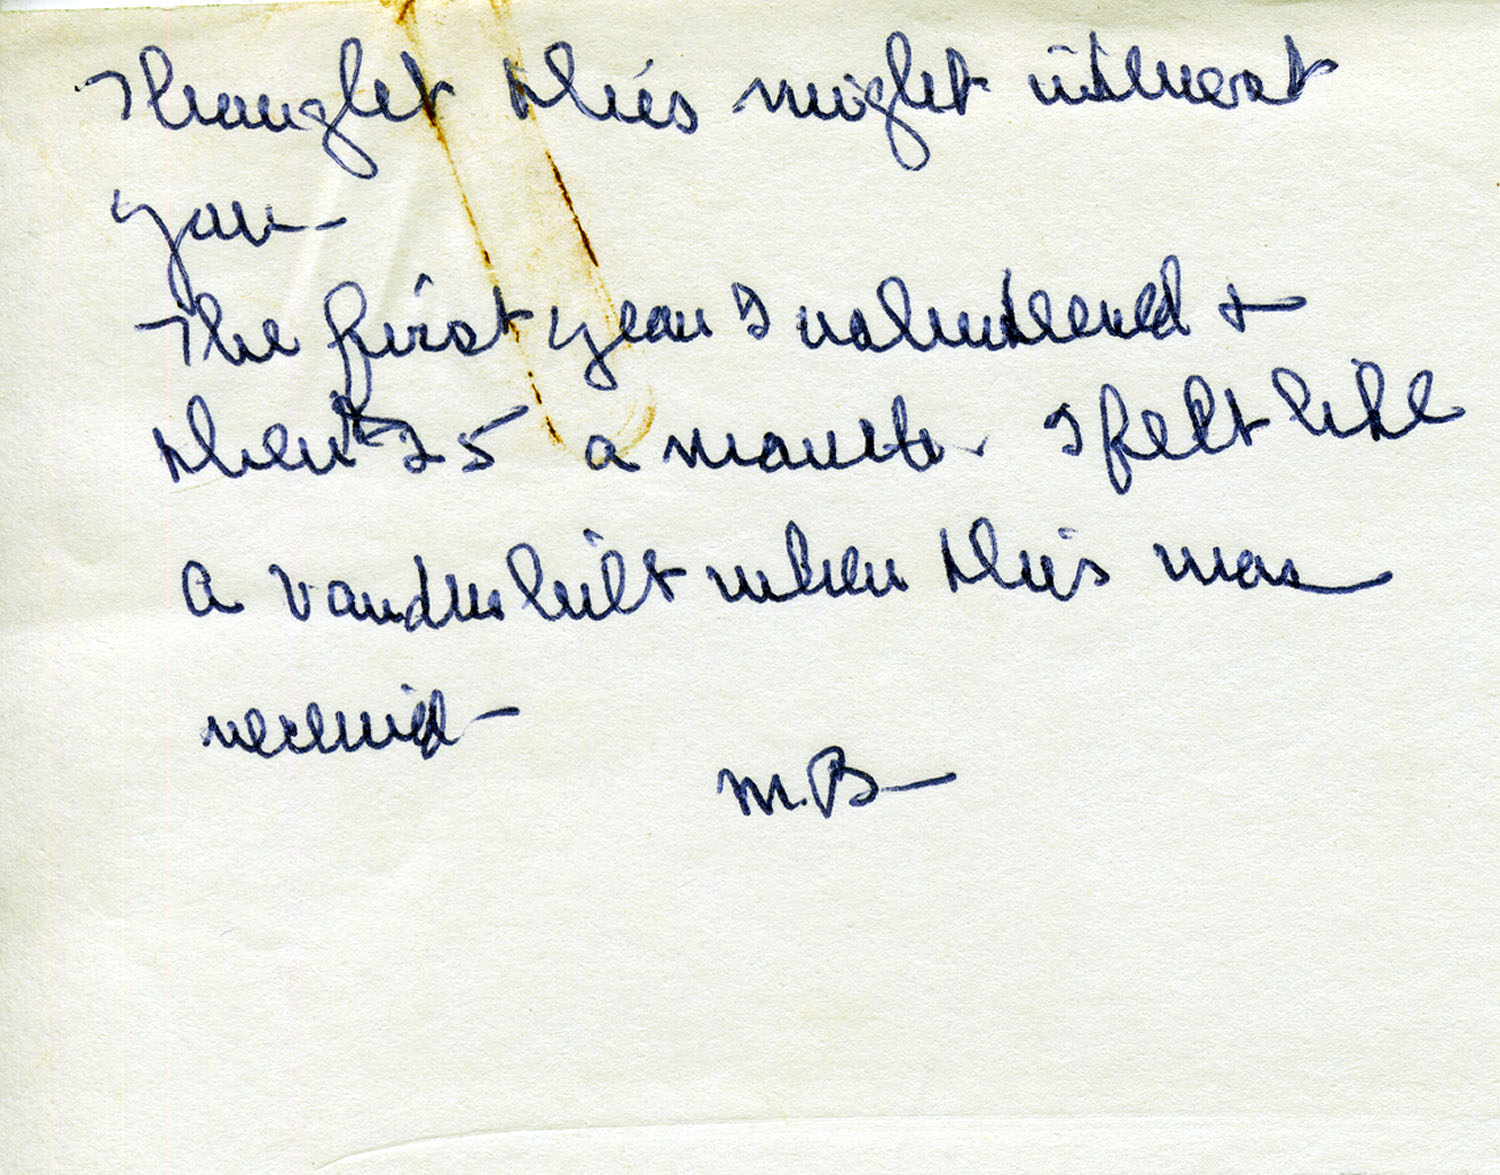 Thought this might interest
you—
The first year I volunteered &
then $25 a month. I felt like
a Vanderbilt when this was
received—
M.B—